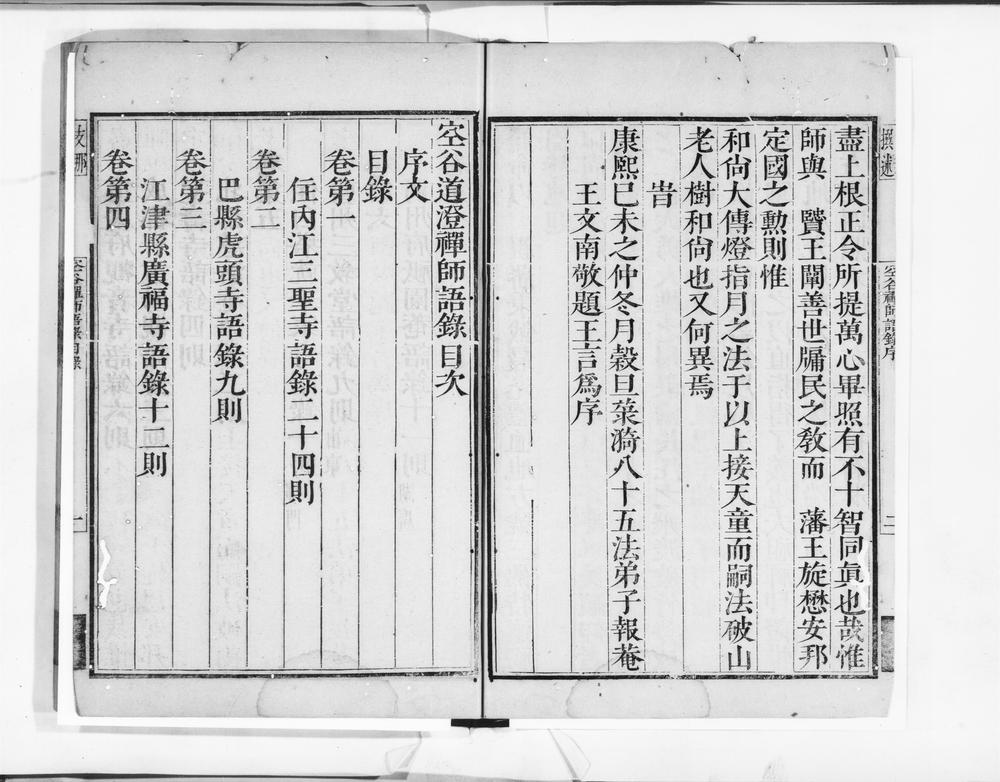 盡上根正令所提萬心畢照有不十智同眞也哉惟
師與　賢王闡善世牖民之敎而　藩王旋懋安邦
定國之勲則惟
和尙大傳燈指月之法于以上接天童而嗣法破山
老人樹和尙也又何異焉
旹
康熙己未之仲冬月榖旦菉漪八十五法弟子報菴
王文南敬題王言爲序
空谷禪師語錄序
二
空谷道澄禪師語錄目次
序文
目錄
卷第一
住內江三聖寺語錄二十四則
卷第二
巴縣虎頭寺語錄九則
卷第三
江津縣廣福寺語錄十二則
卷第四
空谷禪師語錄目錄
一